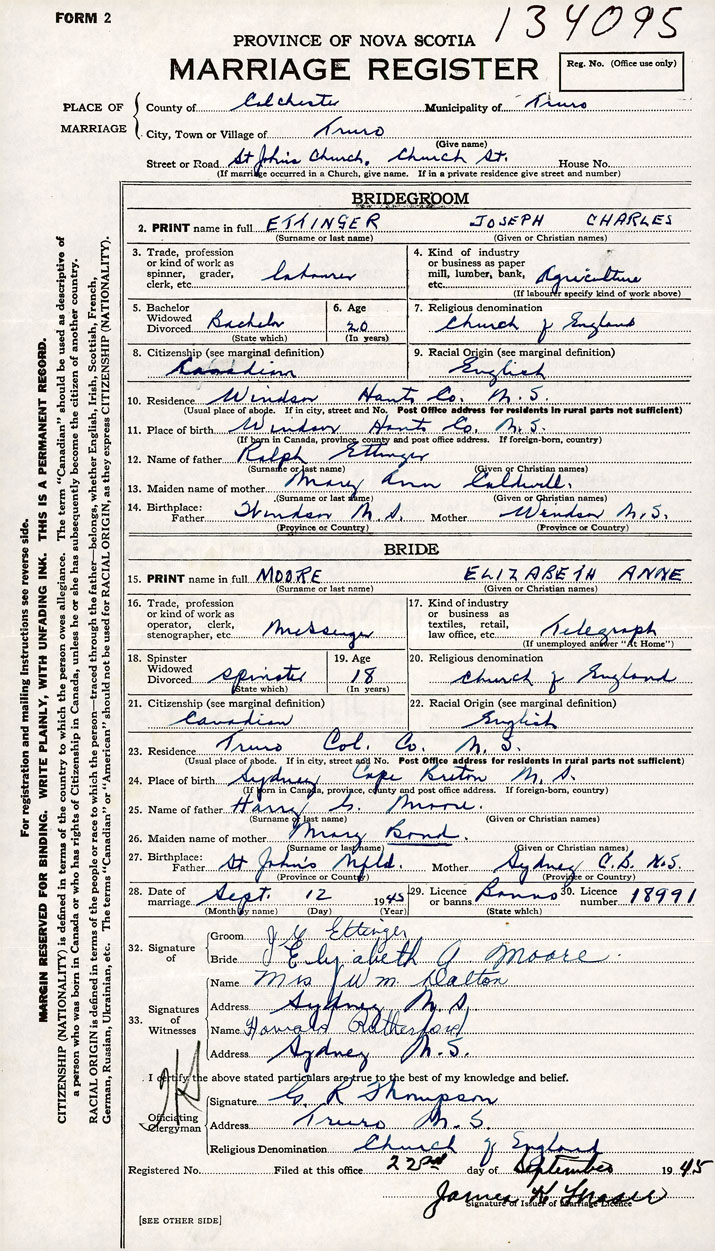 FORM 2
134095
PROVINCE OF NOVA SCOTIA
MARRIAGE REGISTER
Reg. No. (Office use only)
PLACE OF MARRIAGE
County of Colchester Municipality of Truro
City, Town or Village of Truro
(Give name)
Street or Road St John's Church, Church St. House No.
(If marriage occurred in a Church, give name. If in a private residence give street and number)
BRIDEGROOM
2. PRINT name in full ETTINGER JOSEPH CHARLES
(Surname or last name) (Given or Christian names)
3. Trade, profession or kind of work as spinner, grader, clerk, etc. labourer
4. Kind of industry or business as paper mill, lumber, bank, etc. Agriculture
(If labourer specify kind of work above)
5. Bachelor Widowed Divorced Bachelor
(State which)
6. Age 20
(In years)
7. Religious denomination
Church of England
8. Citizenship (see marginal definition)
Canadian
9. Racial Origin (see marginal definition)
English
10. Residence Windsor Hants Co. N.S.
(Usual place of abode. If in city, street and No. Post Office address for residents in rural parts not sufficient)
11. Place of birth Windsor Hants Co. N.S.
(If born in Canada, province, county and post office address. If foreign-born, country)
12. Name of father Ralph Ettinger
(Surname or last name) (Given or Christian names)
13. Maiden name of mother Mary Ann Caldwell.
(Surname or last name) (Given or Christian names)
14. Birthplace: Father Windsor N.S. Mother Windsor N.S.
(Province or Country) (Province or Country)
BRIDE
15. PRINT name in full MOORE ELIZABETH ANNE
(Surname or last name) (Given or Christian names)
16. Trade, profession or kind of work as operator, clerk, stenographer, etc. Messenger
17. Kind of industry or business as textiles, retail, law office, etc. Telegraph
(If unemployed answer "At Home")
18. Spinster Widowed Divorced Spinster
(State which)
19. Age 18
(In years)
20. Religious denomination
Church of England
21. Citizenship (see marginal definition)
Canadian
22. Racial Origin (see marginal definition)
English
23. Residence Truro Col. Co. N.S.
(Usual place of abode. If in city, street and No. Post Office address for residents in rural parts not sufficient)
24. Place of birth Sydney Cape Breton N.S.
(If born in Canada, province, county and post office address. If foreign-born, country)
25. Name of father Harry G. Moore.
(Surname or last name) (Given or Christian names)
26. Maiden name of mother Mary Bond.
(Surname or last name) (Given or Christian names)
27. Birthplace: Father St John's Nfld. Mother Sydney C.B. N.S.
(Province or Country) (Province or Country)
28. Date of marriage Sept. 12 1945
(Month by name) (Day) (Year)
29. Licence or banns Banns
(State which)
30. Licence number 18991
32. Signature of
Groom J C Ettinger
Bride Elizabeth A Moore.
33. Signatures of Witnesses
Name Mrs Wm. Dalton
Address Sydney N.S.
Name Howard Rutherford
Address Sydney N.S.
I certify the above stated particulars are true to the best of my knowledge and belief.
Officiating Clergyman
Signature G. R Thompson
Address Truro N.S.
Religious Denomination Church of England
Registered No. Filed at this office 22nd day of September 1945
James H Fraser
Signature of Issuer of Marriage Licence
[SEE OTHER SIDE]
For registration and mailing instructions see reverse side.
MARGIN RESERVED FOR BINDING. WRITE PLAINLY, WITH UNFADING INK. THIS IS A PERMANENT RECORD.
CITIZENSHIP (NATIONALITY) is defined in terms of the country to which the person owes allegiance. The term "Canadian" should be used as descriptive of
a person who was born in Canada or who has rights of Citizenship in Canada, unless he or she has subsequently become the citizen of another country.
RACIAL ORIGIN is defined in terms of the people or race to which the person—traced through the father—belongs, whether English, Irish, Scottish, French,
German, Russian, Ukrainian, etc. The terms "Canadian" or "American" should not be used for RACIAL ORIGIN, as they express CITIZENSHIP (NATIONALITY).